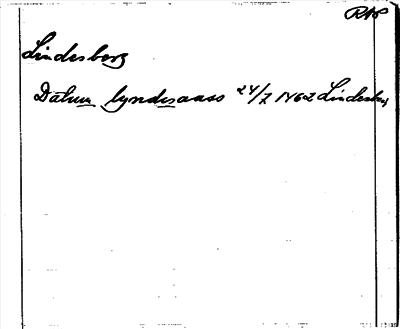 RAP
Lindesberg
Datum lyndesaass 24/7 1462 Lindesberg